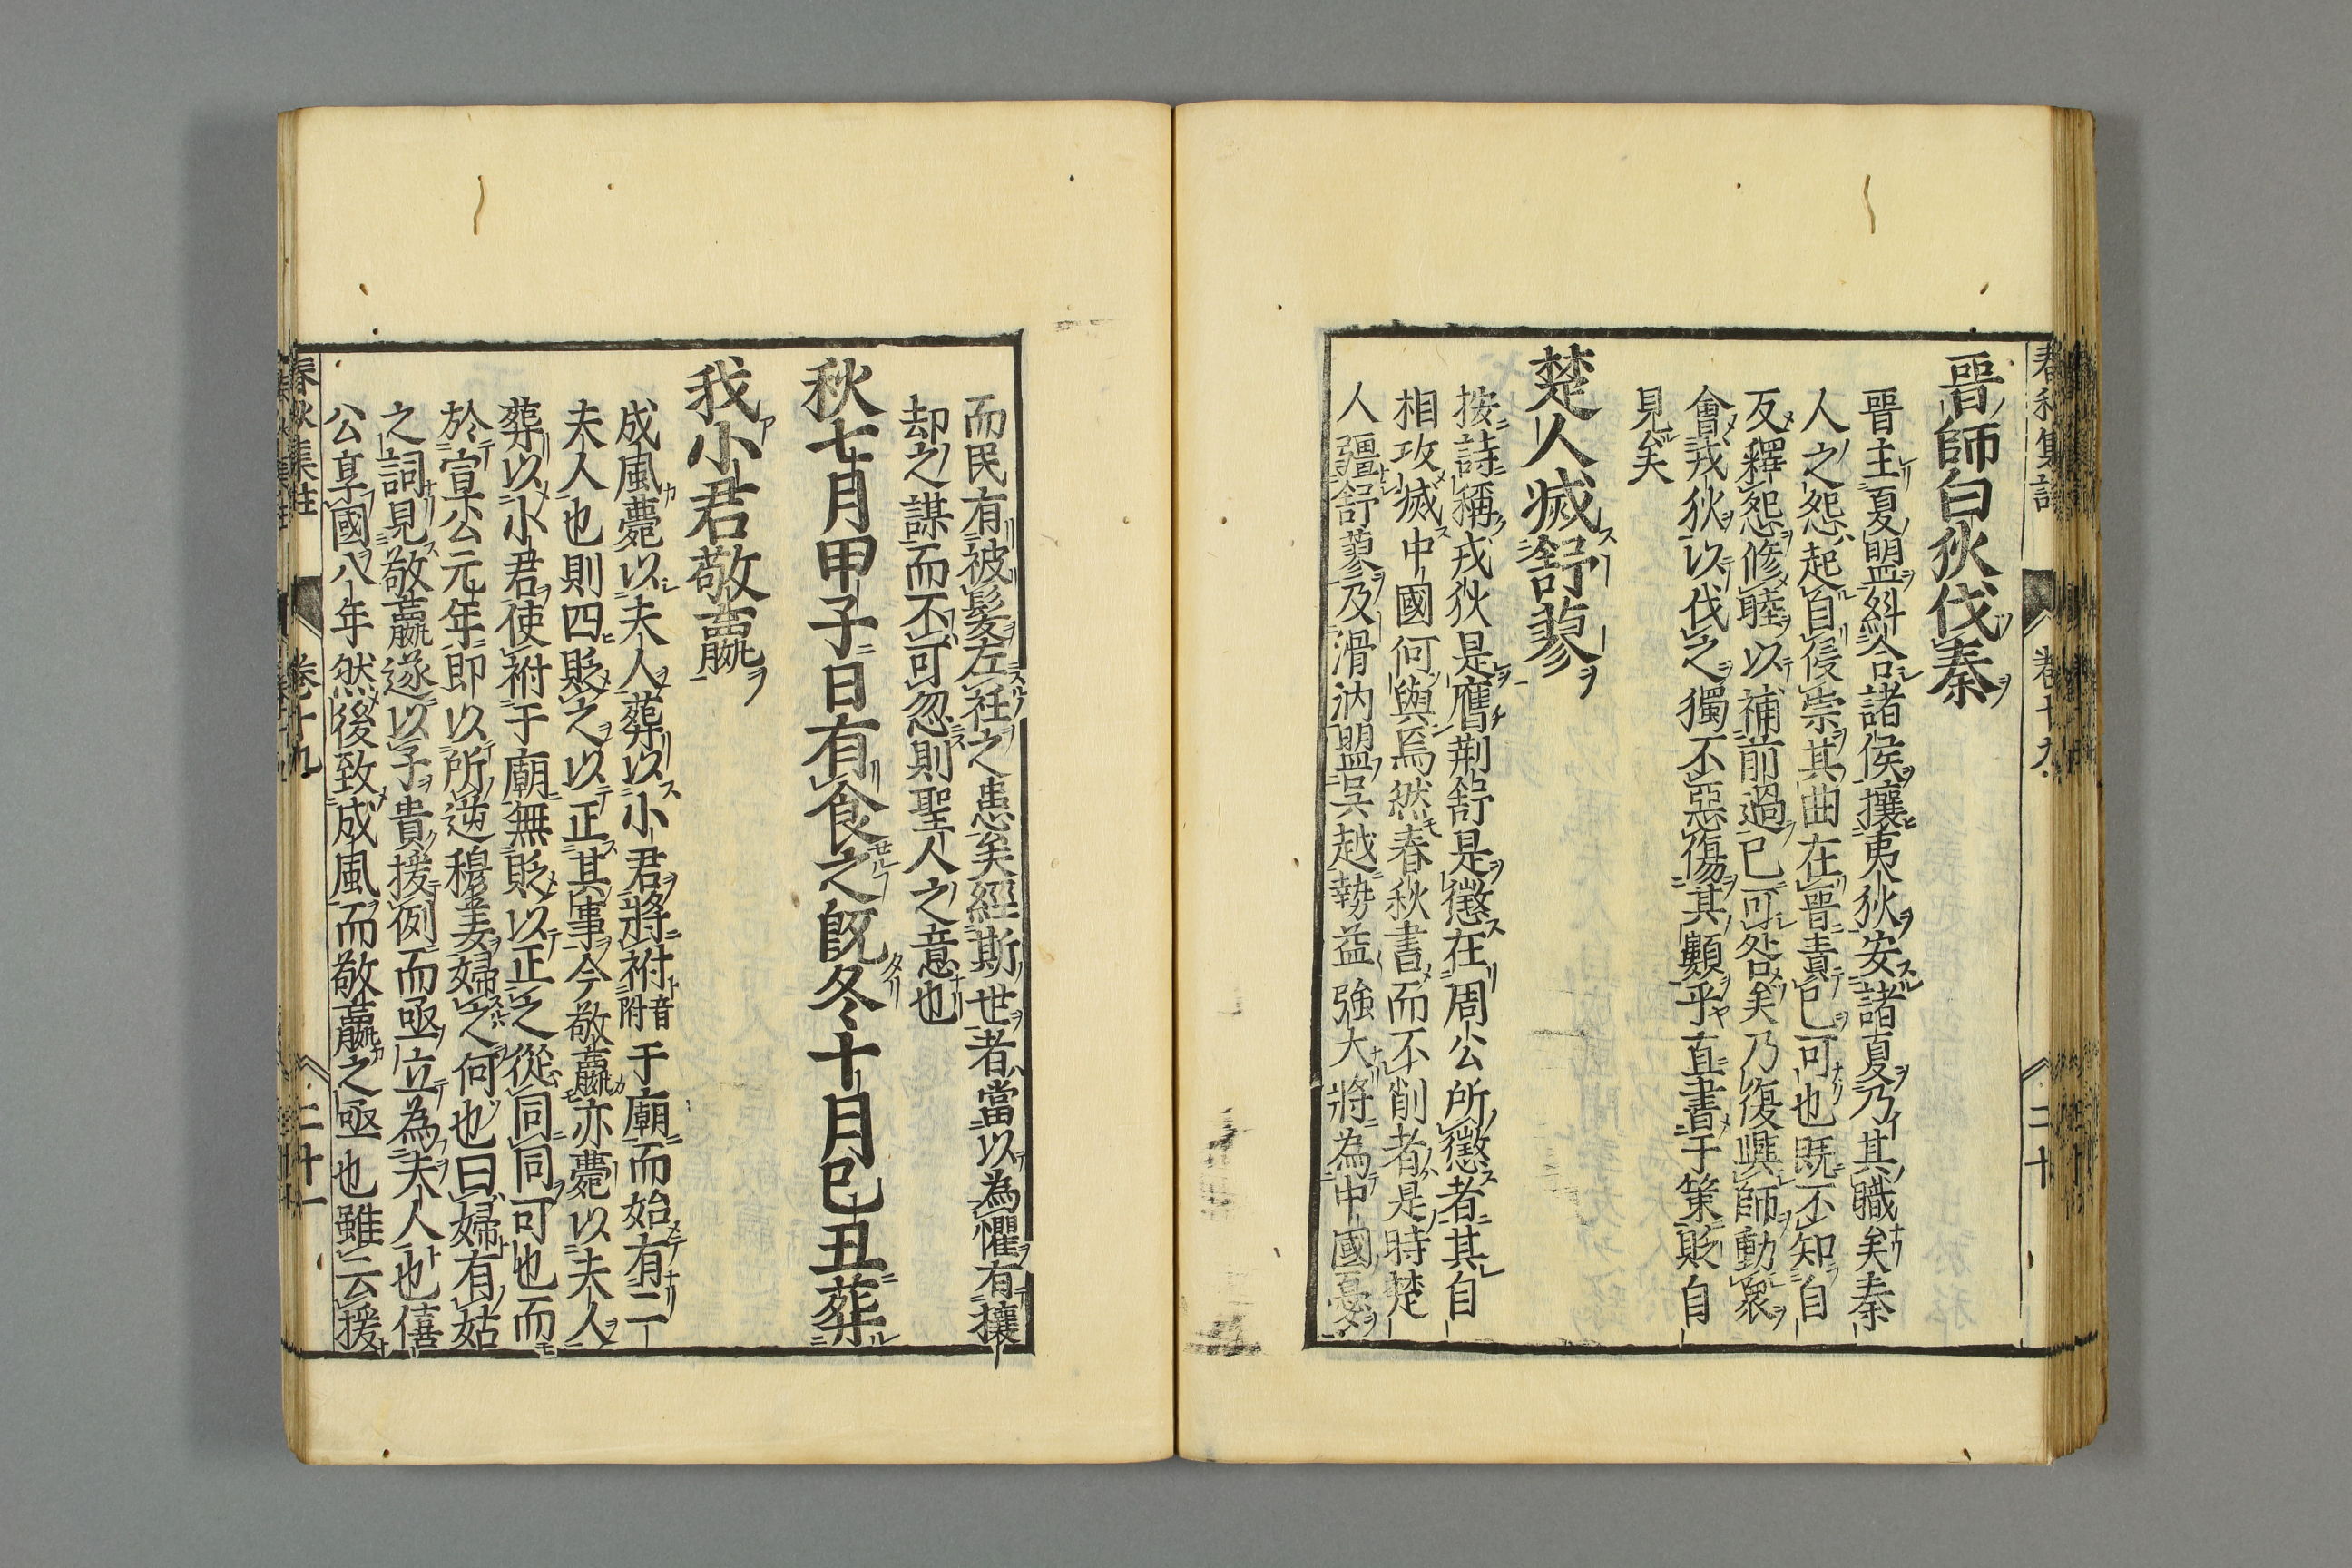 晉師白狄伐秦
晉主夏盟糾合諸侯攘夷狄安諸夏乃其職矣秦
人之怨起自侵崇其曲在晉責已可也既不知自
反釋怨修睦以補前過已可咎矣乃復興師動衆
會戎狄以伐之獨不惡傷其類乎直書于策貶自
見矣
楚人滅舒蓼
按詩稱戎狄是膺荆舒是懲在周公所懲者其自
相攻滅中國何與焉然春秋書而不削者是時楚
人疆舒蓼及滑汭盟吳越勢益強大將為中國憂
而民有被髮左衽之患矣經斯世者當以為懼有攘
却之謀而不可忽則聖人之意也
秋七月甲子日有食之既冬十月己丑葬
我小君敬嬴
成風薨以夫人葬以小君將祔音附于廟而始有二
夫人也則四貶之以正其事今敬嬴亦薨以夫人
葬以小君使祔于廟無貶以正之從同同可也而
於宣公元年即以所逆穆姜婦之何也曰婦有姑
之詞見敬嬴遂以子貴援例而亟立為夫人也僖
公享國八年然後致成風而敬嬴之亟也雖云援
春秋集註 卷十九 二十
春秋集註 卷十九 二十一